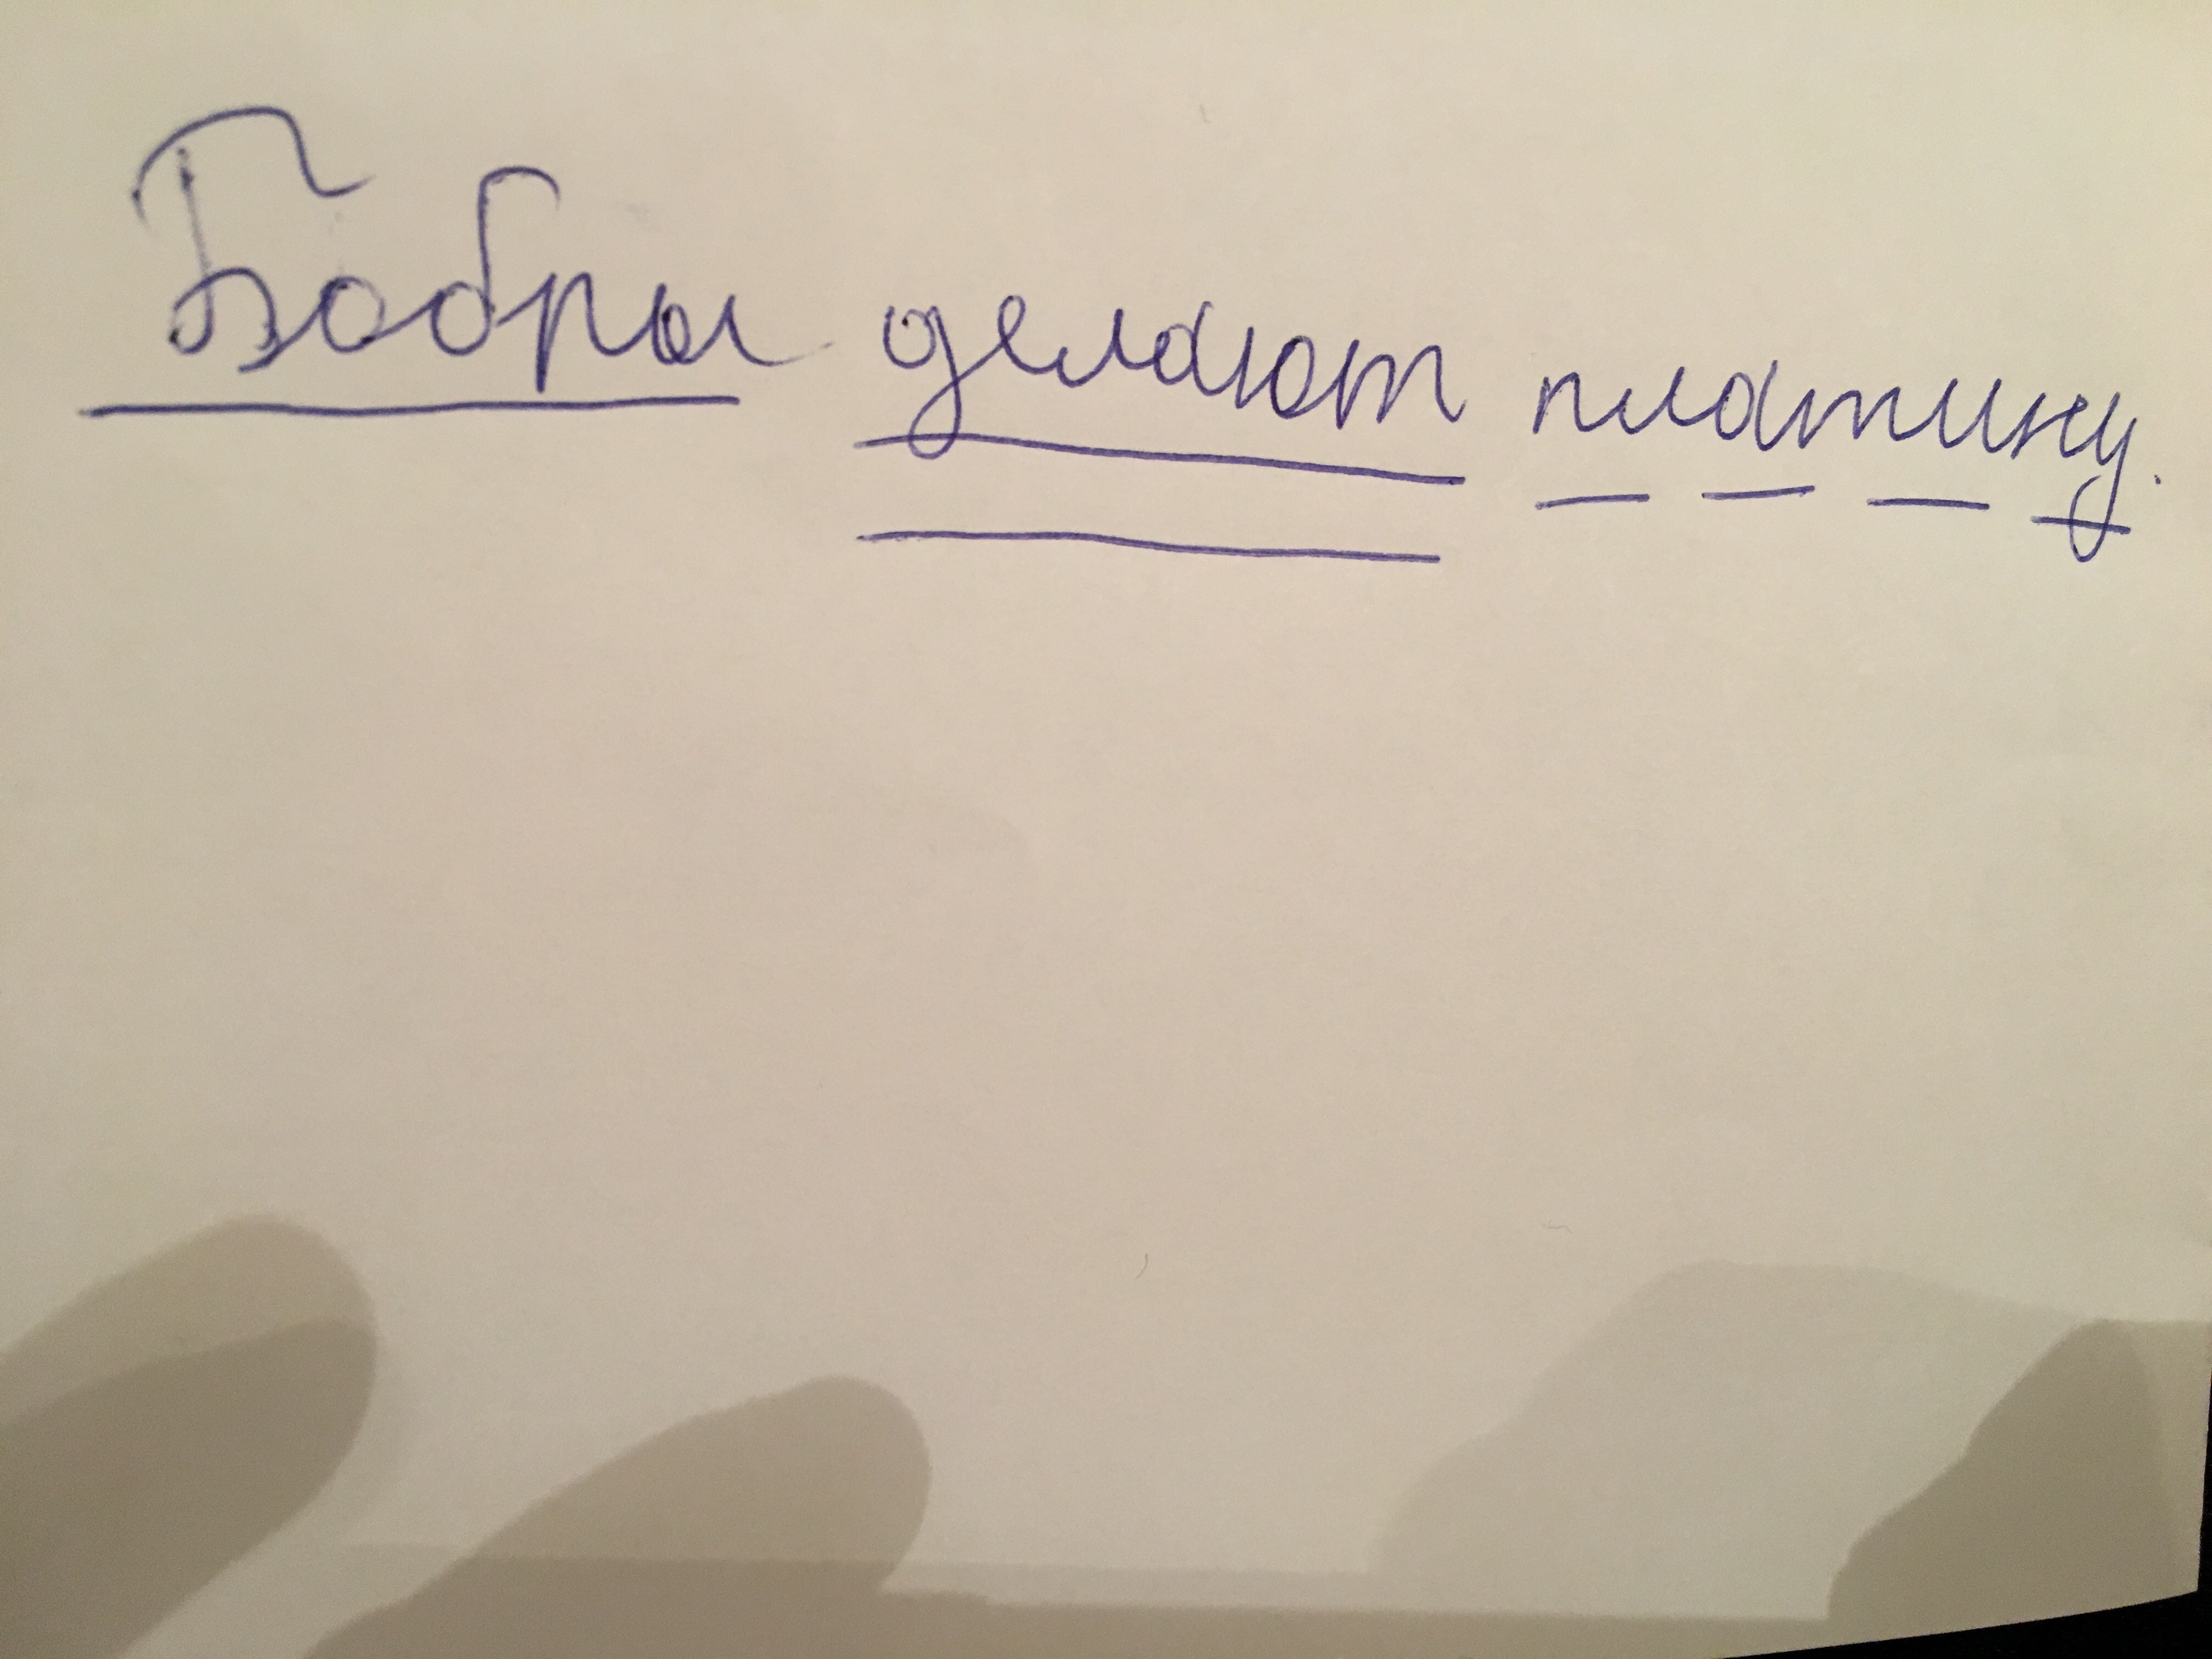 Бобры делают платину.